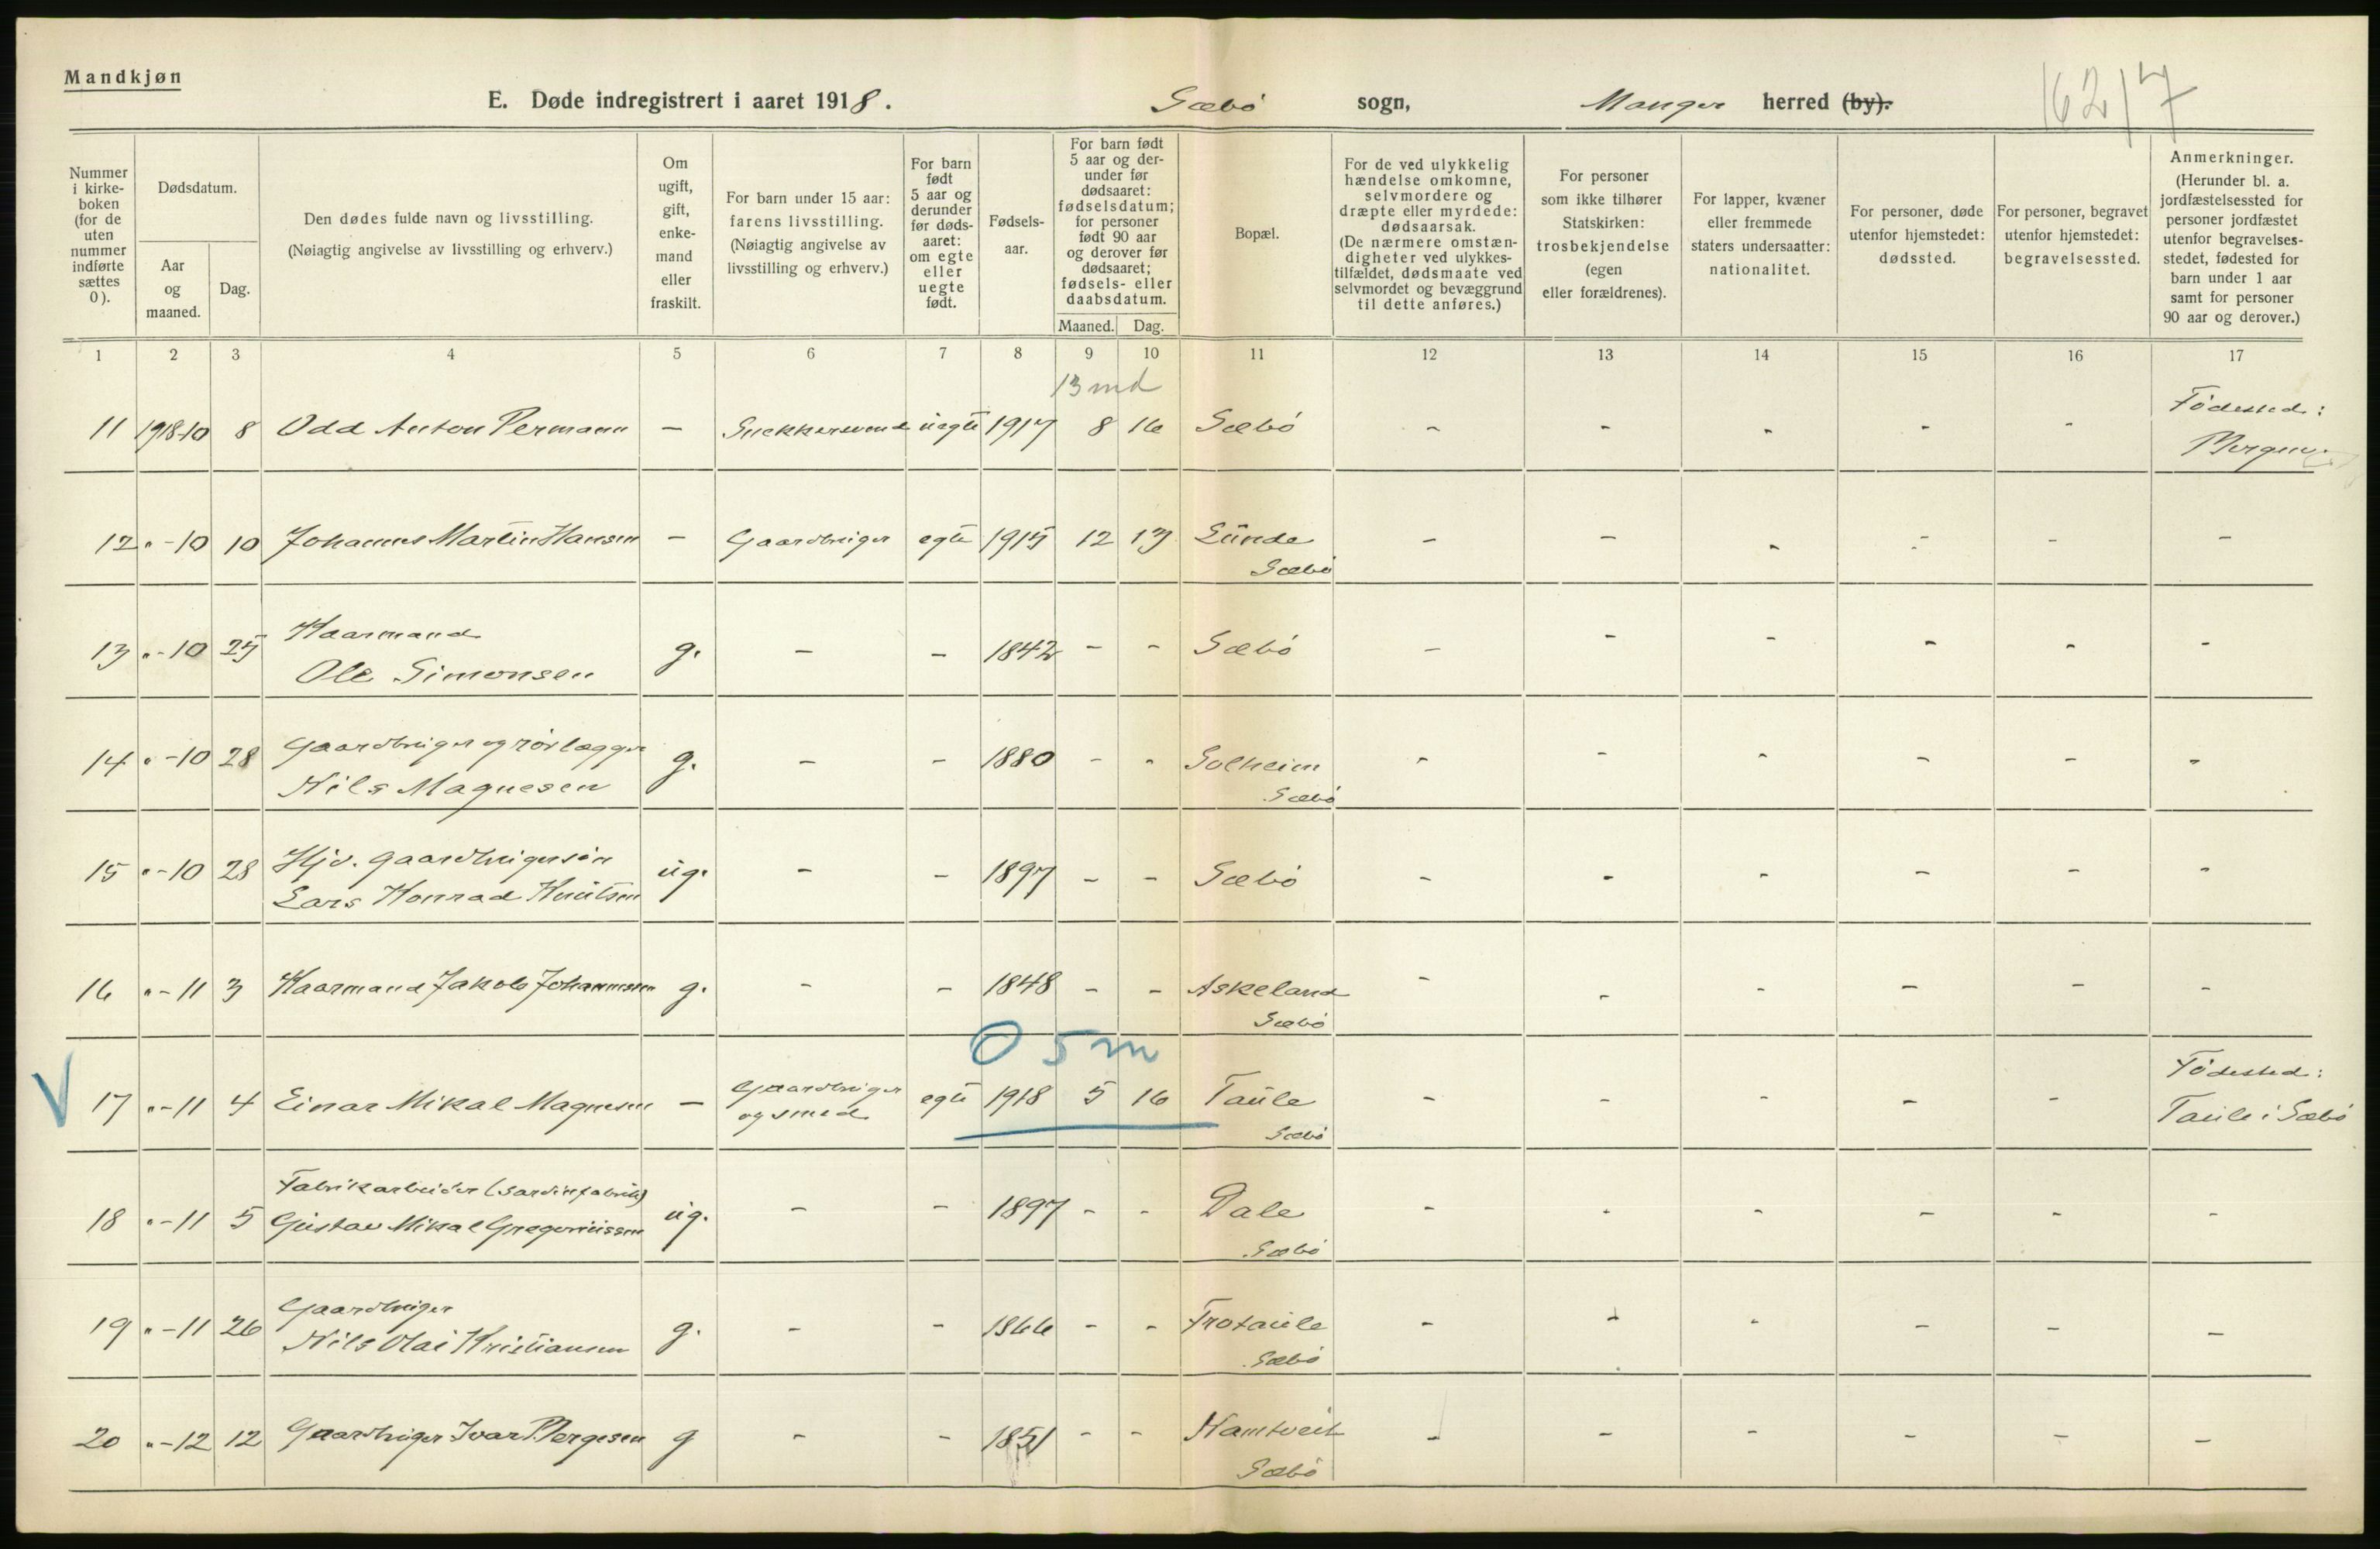 Mandkjøn
E. Døde indregistrert i aaret 1918. Sæbö sogn, Manger herred (by).
Nummer i kirke- boken (for de uten nummer indførte sættes 0).
Dødsdatum.
Aar og maaned.
Dag.
Den dødes fulde navn og livsstilling.
(Nøiagtig angivelse av livsstilling og erhverv.)
Om ugift, gift, enke- mand eller fraskilt.
For barn under 15 aar: farens livsstilling. (Nøiagtig angivelse av livsstilling og erhverv.)
For barn født 5 aar og derunder før døds- aaret: om egte eller uegte født.
Fødsels- aar.
For barn født 5 aar og der- under før dødsaaret: fødselsdatum; for personer født 90 aar og derover før dødsaaret; fødsels- eller daabsdatum.
Maaned. Dag.
Bopæl.
For de ved ulykkelig hændelse omkomne, selvmordere og dræpte eller myrdede: dødsaarsak. (De nærmere omstæn- digheter ved ulykkes- tilfældet, dødsmaate ved selvmordet og bevæggrund til dette anføres.)
For personer som ikke tilhører Statskirken: trosbekjendelse (egen eller forældrenes).
For lapper, kvæner eller fremmede staters undersaatter: nationalitet.
For personer, døde utenfor hjemstedet: dødssted.
For personer, begravet utenfor hjemstedet: begravelsessted.
Anmerkninger. (Herunder bl. a. jordfæstelsessted for personer jordfæstet utenfor begravelses- stedet, fødested for barn under 1 aar samt for personer 90 aar og derover.)
1 2 3 4 5 6 7 8 9 10 11 12 13 14 15 16 17
13 md
11 1918-10 8 Odd Anton Permann - Snekkersvend uegte 1917 8 16 Sæbö - - - - - Födested:
Bergen.
12 "-10 10 Johannes Martin Hansen - Gaardbruger egte 1915 12 13 Lunde - - - - - -
Sæbö
Kaarmand
13 "-10 25 Ole Simonsen g. - - 1842 - - Sæbö - - - - - -
Gaardbruger og rörlægger
14 "-10 28 Nils Magnesen g. - - 1880 - - Solheim - - - - - -
Sæbö
Hjv. gaardbrugersön
15 "-10 28 Lars Konrad Knutsen ug. - - 1897 - - Sæbö - - - - - -
16 "-11 3 Kaarmand Jakob Johannesen g. - - 1848 - - Askeland - - - - - -
Sæbö
0 5 m
V 17 "-11 4 Einar Mikal Magnesen - Gaardbruger og smed egte 1918 5 16 Taule - - - - - Födested:
Sæbö Taule i Sæbö
Fabrikarbeider (sardinfabrik)
18 "-11 5 Gustav Mikal Gregoriussen ug. - - 1897 - - Dale - - - - - -
Sæbö
Gaardbruger
19 "-11 26 Nils Olai Kristiansen g. - - 1866 - - Frotaule - - - - - -
Sæbö
20 "-12 12 Gaardbruger Ivar Bergesen g - - 1851 - - Namtveit - - - - - -
Sæbö